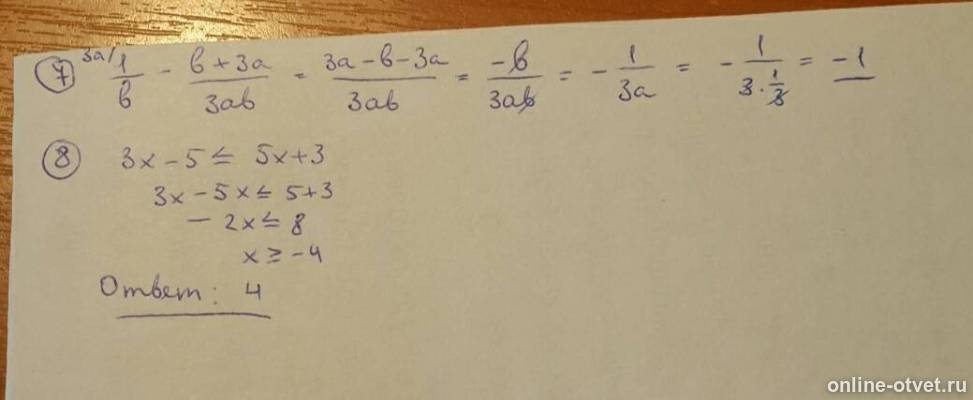 7 3a/ 1/в - (в + 3a)/(3aв) = (3a - в - 3a)/(3aв) = -в/(3aв) = - 1/(3a) = - 1/(3 · 1/3) = -1
8 3x - 5 ≤ 5x + 3
3x - 5x ≤ 5 + 3
- 2x ≤ 8
x ≥ -4
Ответ: 4
online-otvet.ru